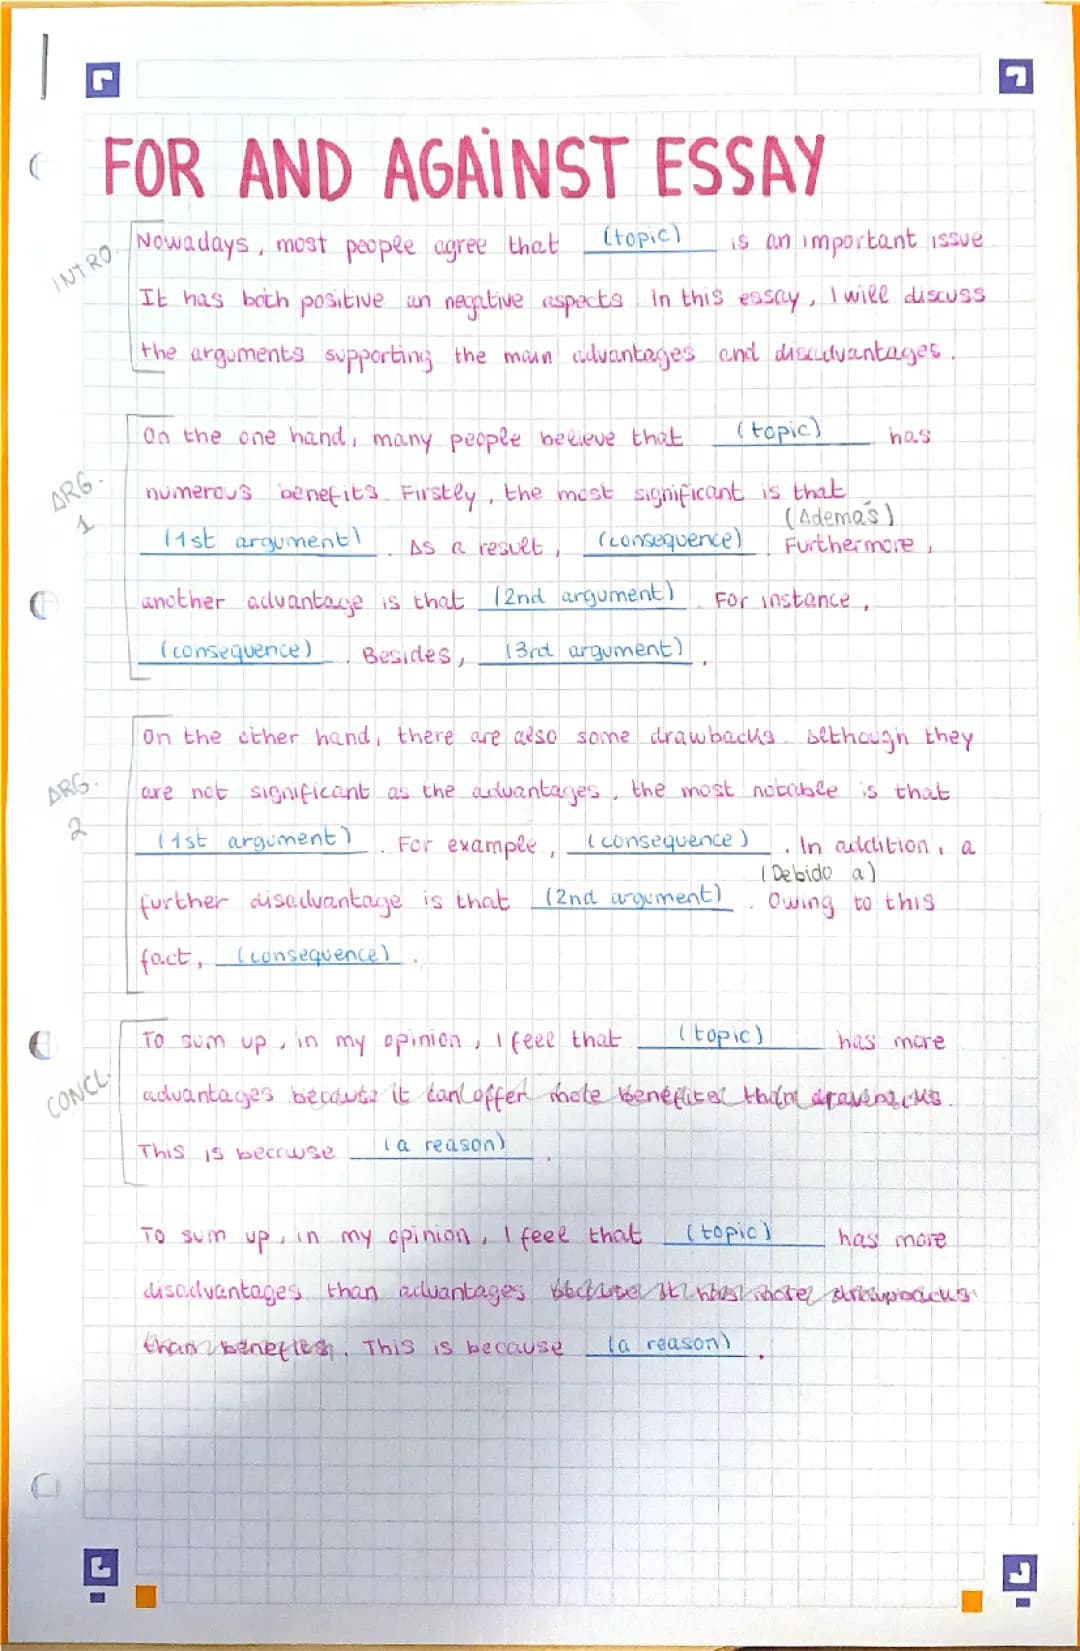 FOR AND AGAINST ESSAY
INTRO.
Nowadays, most people agree that (topic) is an important issue
It has both positive an negative aspects. In this essay, I will discuss
the arguments supporting the main advantages and disadvantages.
ARG. 1
On the one hand, many people believe that (topic) has
numerous benefits. Firstly, the most significant is that
(Además)
(1st argument). As a result, (consequence). Furthermore,
another advantage is that (2nd argument). For instance,
(consequence). Besides, (3rd argument).
ARG. 2
On the other hand, there are also some drawbacks. Although they
are not significant as the advantages, the most notable is that
(1st argument). For example, (consequence). In addition, a
(Debido a)
further disadvantage is that (2nd argument). Owing to this
fact, (consequence).
CONCL.
To sum up, in my opinion, I feel that (topic) has more
advantages because it can offer more benefites than drawbacks.
This is because (a reason).
To sum up, in my opinion, I feel that (topic) has more
disadvantages than advantages because it has more drawbacks
than benefits. This is because (a reason).